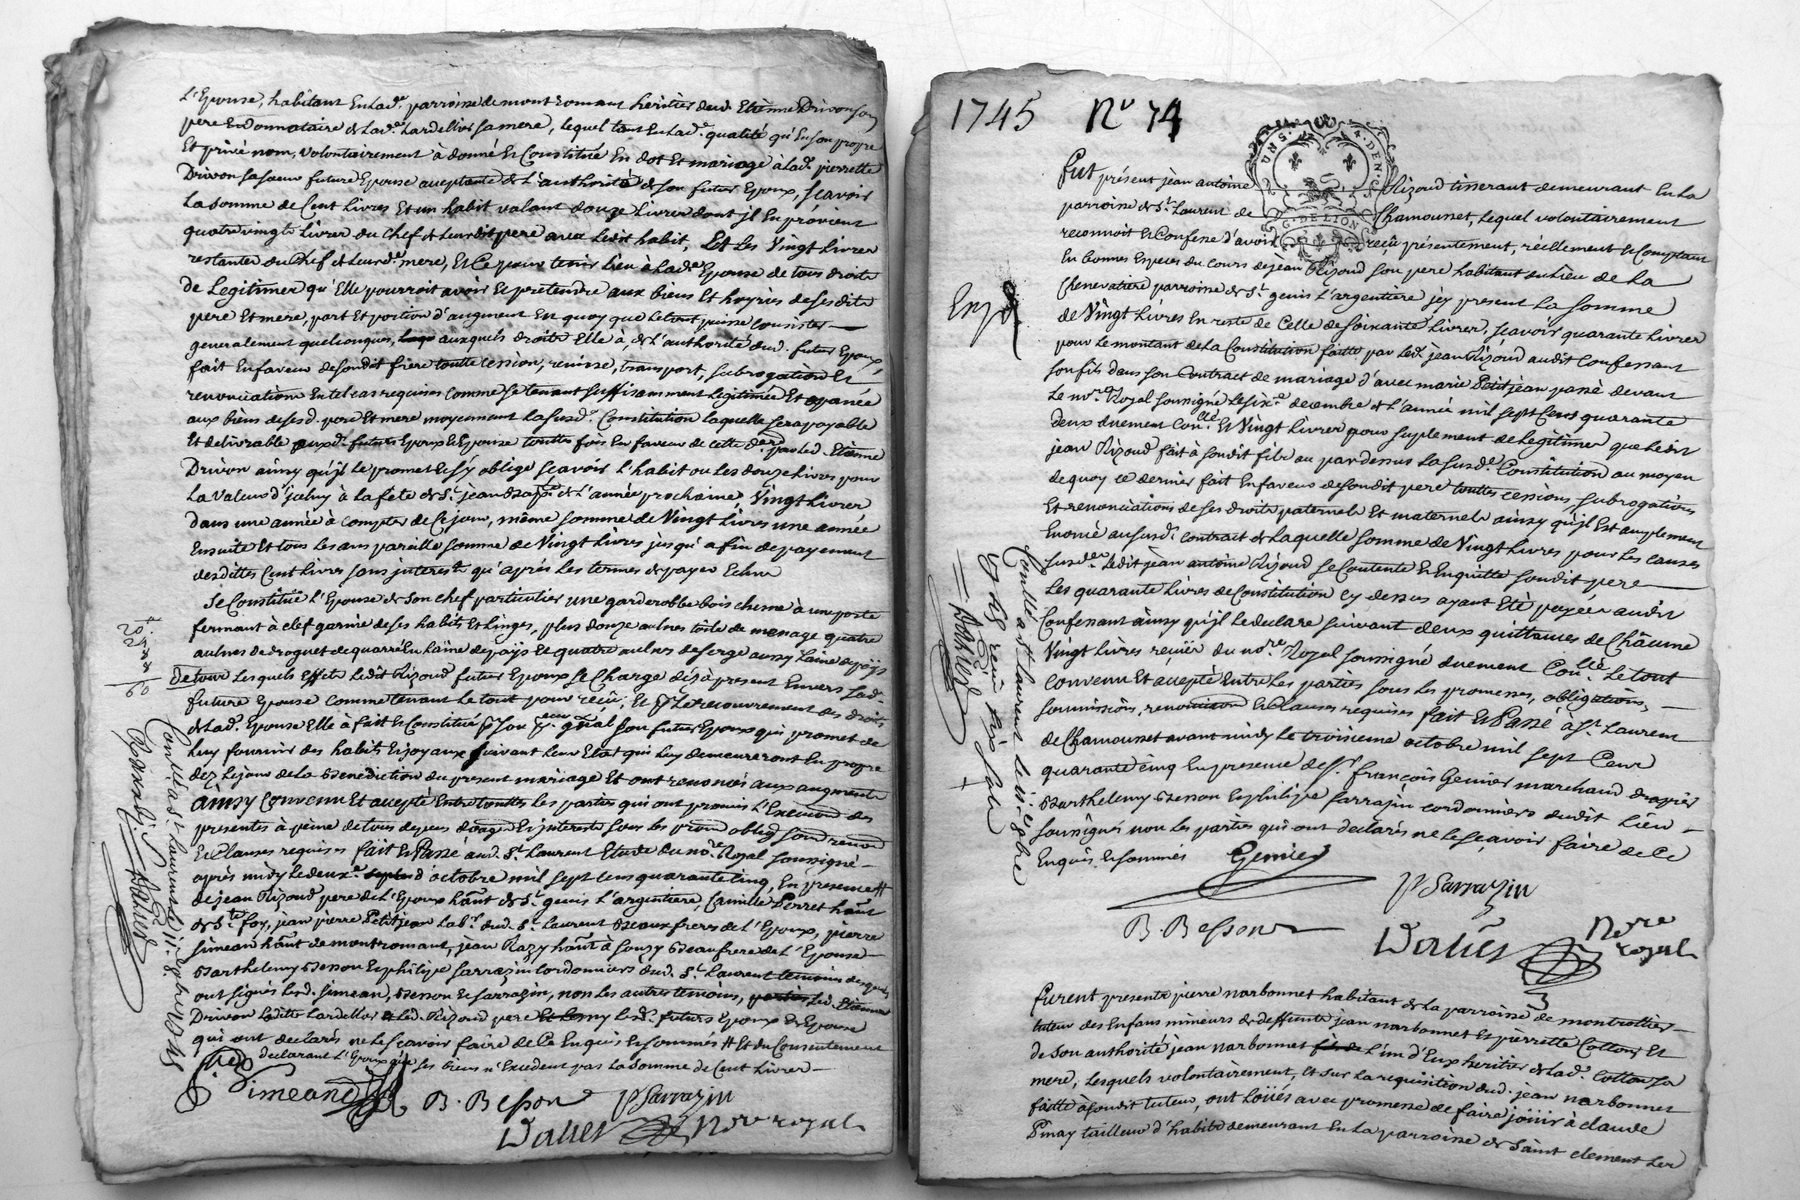 L'Epouse, habitant en lad.e parroisse de montromant heritier dud. Etienne Drivon son
pere et Donnataire de lad.e Lardellier sa mere, lequel tant en lad.e qualité qu'en son propre
Et privé nom, volontairement à donné et Constitué En dot et mariage à lad.e pierrette
Drivon sa soeur future Epouse acceptante de l'authorité de son futur Epoux, scavoir
La somme de Cent livres Et un habit valant douze livres dont jl En provient
quatre vingts livres du chef de leurdit pere avec ledit habit, Et les vingt livres
restantes du chef de leurd.e mere, Et Ce pour tenir lieu à lad.e Epouse de tous droits
de Legitimes qu'Elle pourroit avoir et prétendre aux biens Et hoyries de sesdits
pere Et mere, part Et portion d'augment En quoy que le tout puisse consister
generalement quelconques, auxquels droits Elle à, de l'authorité dud. futur Epoux,
fait En faveur de sondit frere toutte cession, remise, transport, subrogation Et
renonciation En tel cas requises comme se tenant suffisamment legitimée Et apanée
aux biens de sesd. pere Et mere moyennant la susd.e Constitution laquelle sera payable
Et delivrable auxd. futurs Epoux et Epouse touttes fois En faveur de cette der.re par led. Etienne
Drivon ainsy qu'jl le promet Et s'y oblige scavoir l'habit ou les douze livres pour
La valeur d'jceluy à la fête de St. jean Bap.te de l'année prochaine, Vingt livres
Dans une année à compter de ce jour, même somme de Vingt livres une année
Ensuite Et tous les ans pareille somme de Vingt livres jusqu'a fin de payement
desdittes Cent livres sans jnterests qu'aprés les termes de payer Echus
Se Constitüe l'Epouse de son chef particulier une garderobbe bois chesne à une porte
fermant à clef garnie de ses habits et linges, plus douze aulnes toile de menage quatre
aulnes de droguet de quarré en laine de pays Et quatre aulnes de serge aussy laine de pays
De tous lesquels Effets ledit Rizoud futur Epoux se Charge dés à present Envers lad.
future Epouse comme tenant le tout pour reçû, Et pr. le recouvrement des droits
de lad. Epouse Elle à fait et Constitué pr. son pr.eur g.nal son futur Epoux qui promet de
luy fournir des habits et joyaux suivant leur Etat qui luy demeureront En propre
dez le jour de la Benediction du present mariage Et ont renoncés aux augments
ainsy convenu Et accepté Entre touttes les parties qui ont promis l'Execu.on des
presentes à peine de tous depens domages et jnterests sous les prom. oblig. soum. renon.
Et Clauses requises fait et Passé aud. St. Laurent Etude du no.re Royal soussigné
aprés midy le deux.e d'octobre mil sept cens quarante cinq, En presence #
de jean Rizoud pere de l'Epoux hant de St. genis l'argentiere, Camille Perret hant
de Ste. foy, jean pierre Petitjean lab.r dud. St. Laurent Beaux freres de l'Epoux, pierre
Simeand hant de montromant, jean Razy hant à Souzy Beaufrere de l'Epouse
Barthelemy Besson Et philipe Sarrazin Cordonniers dud. St. Laurent temoins desquels
ont signés lesd. Simeand, Besson et Sarrazin, non les autres temoins, led. Etienne
Drivon ladite Lardellier led. Rizoud pere lesd. futurs Epoux Et Epouse
qui ont declarés ne le scavoir faire de Ce Enquis Et sommés # Et du Consentement
declarant l'Epoux que ses biens n'Excedent pas la somme de Cent livres
Simeand B. Besson P Sarrazin
Valies Nore royal
Conllé a St Laurent le
1745
1745 No 74
UNS. 4. DEN.
G. DE LION
Fut présent jean antoine Rizoud tisserant demeurant En la
parroisse de St. Laurent de Chamousset, lequel volontairement
reconnoit et Confesse d'avoir reçû présentement, réellement et Comptant
En bonnes Especes du cours de jean Rizoud son pere habitant du lieu de la
Chenevatiere parroisse de St. genis l'argentiere jcy present La somme
de Vingt livres En reste de Celle de soixante livres, scavoir quarante livres
pour le montant de la Constitution faitte par led. jean Rizoud audit Confessant
son fils dans son Contract de mariage d'avec marie Petitjean passé devant
Le no.re Royal soussigné le six.e decembre de l'année mil sept Cens quarante
deux duement Con.llé Et Vingt livres pour suplement de legitimes que ledit
jean Rizoud fait à sondit fils au pardessus la susd.e Constitution au moyen
de quoy ce dernier fait En faveur de sondit pere touttes cessions, subrogations
Et renonciations de ses droits paternels Et maternels ainsy qu'jl Est amplement
Enoncé au susd. contract de laquelle somme de Vingt livres pour les causes
susd.es ledit jean antoine Rizoud se Contente Et Enquitte sondit pere
Les quarante livres de Constitution cy dessus ayant Eté payées audit
Confessant ainsy qu'jl le declare suivant deux quittances de Châcune
Vingt livres reçües du no.re Royal soussigné duement Con.llé Le tout
convenu Et accepté Entre les parties sous les promesses, obligations,
soumissions, renonciation et Clauses requises fait et Passé à St. Laurent
de Chamousset avant midy le troisieme octobre mil sept Cens
quarante cinq En presence de Sr. françois Gemier marchand drapier
Barthelemy Besson Et philipe Sarrazin cordonniers dudit lieu
soussignés non les parties qui ont declarés ne le scavoir faire de Ce
Enquis et sommés Gemier
P Sarrazin
B. Besson
Valies Nore
royal
Conllé a St Laurent le
Furent presents pierre narbonnet habitant de la parroisse de montrottier
tuteur des Enfans mineurs de deffunts jean narbonnet Et pierrette Cotton Et
de son authorité jean narbonnet l'un d'Eux heritier de lad. Cotton sa
mere, lesquels volontairement, et sur la requisition dud. jean narbonnet
faitte à sondit tuteur, ont loüés avec promesse de faire joüir à claude
Pinay tailleur d'habits demeurant En la parroisse de Saint clement les